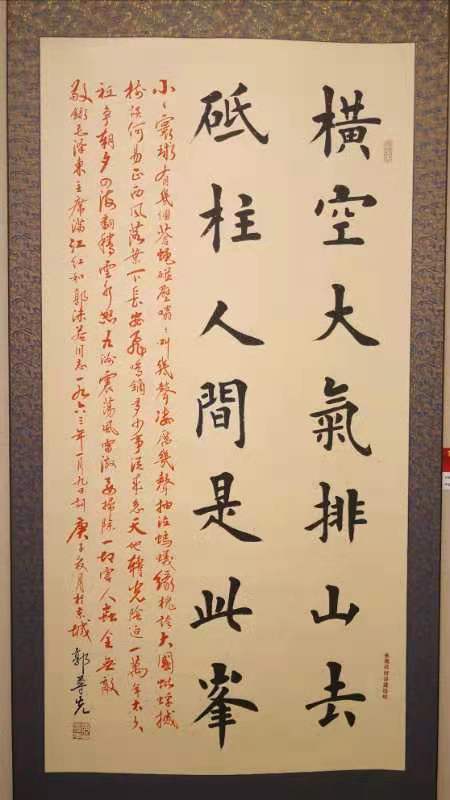 橫空大氣排山去
砥柱人間是此峯
小〻寰球有幾個蒼蠅碰壁嗡〻叫幾聲凄厲幾聲抽泣螞蟻緣槐誇大國蚍蜉撼
樹談何易正西風落葉下長安飛鳴鏑多少事從來急天地轉光陰迫一萬年太久
祇爭朝夕四海翻騰雲水怒五洲震蕩風雷激要掃除一切害人蟲全無敵
敬錄毛澤東主席滿江紅和郭沫若同志一九六三年一月九日詞 庚子夏月於京城 郭